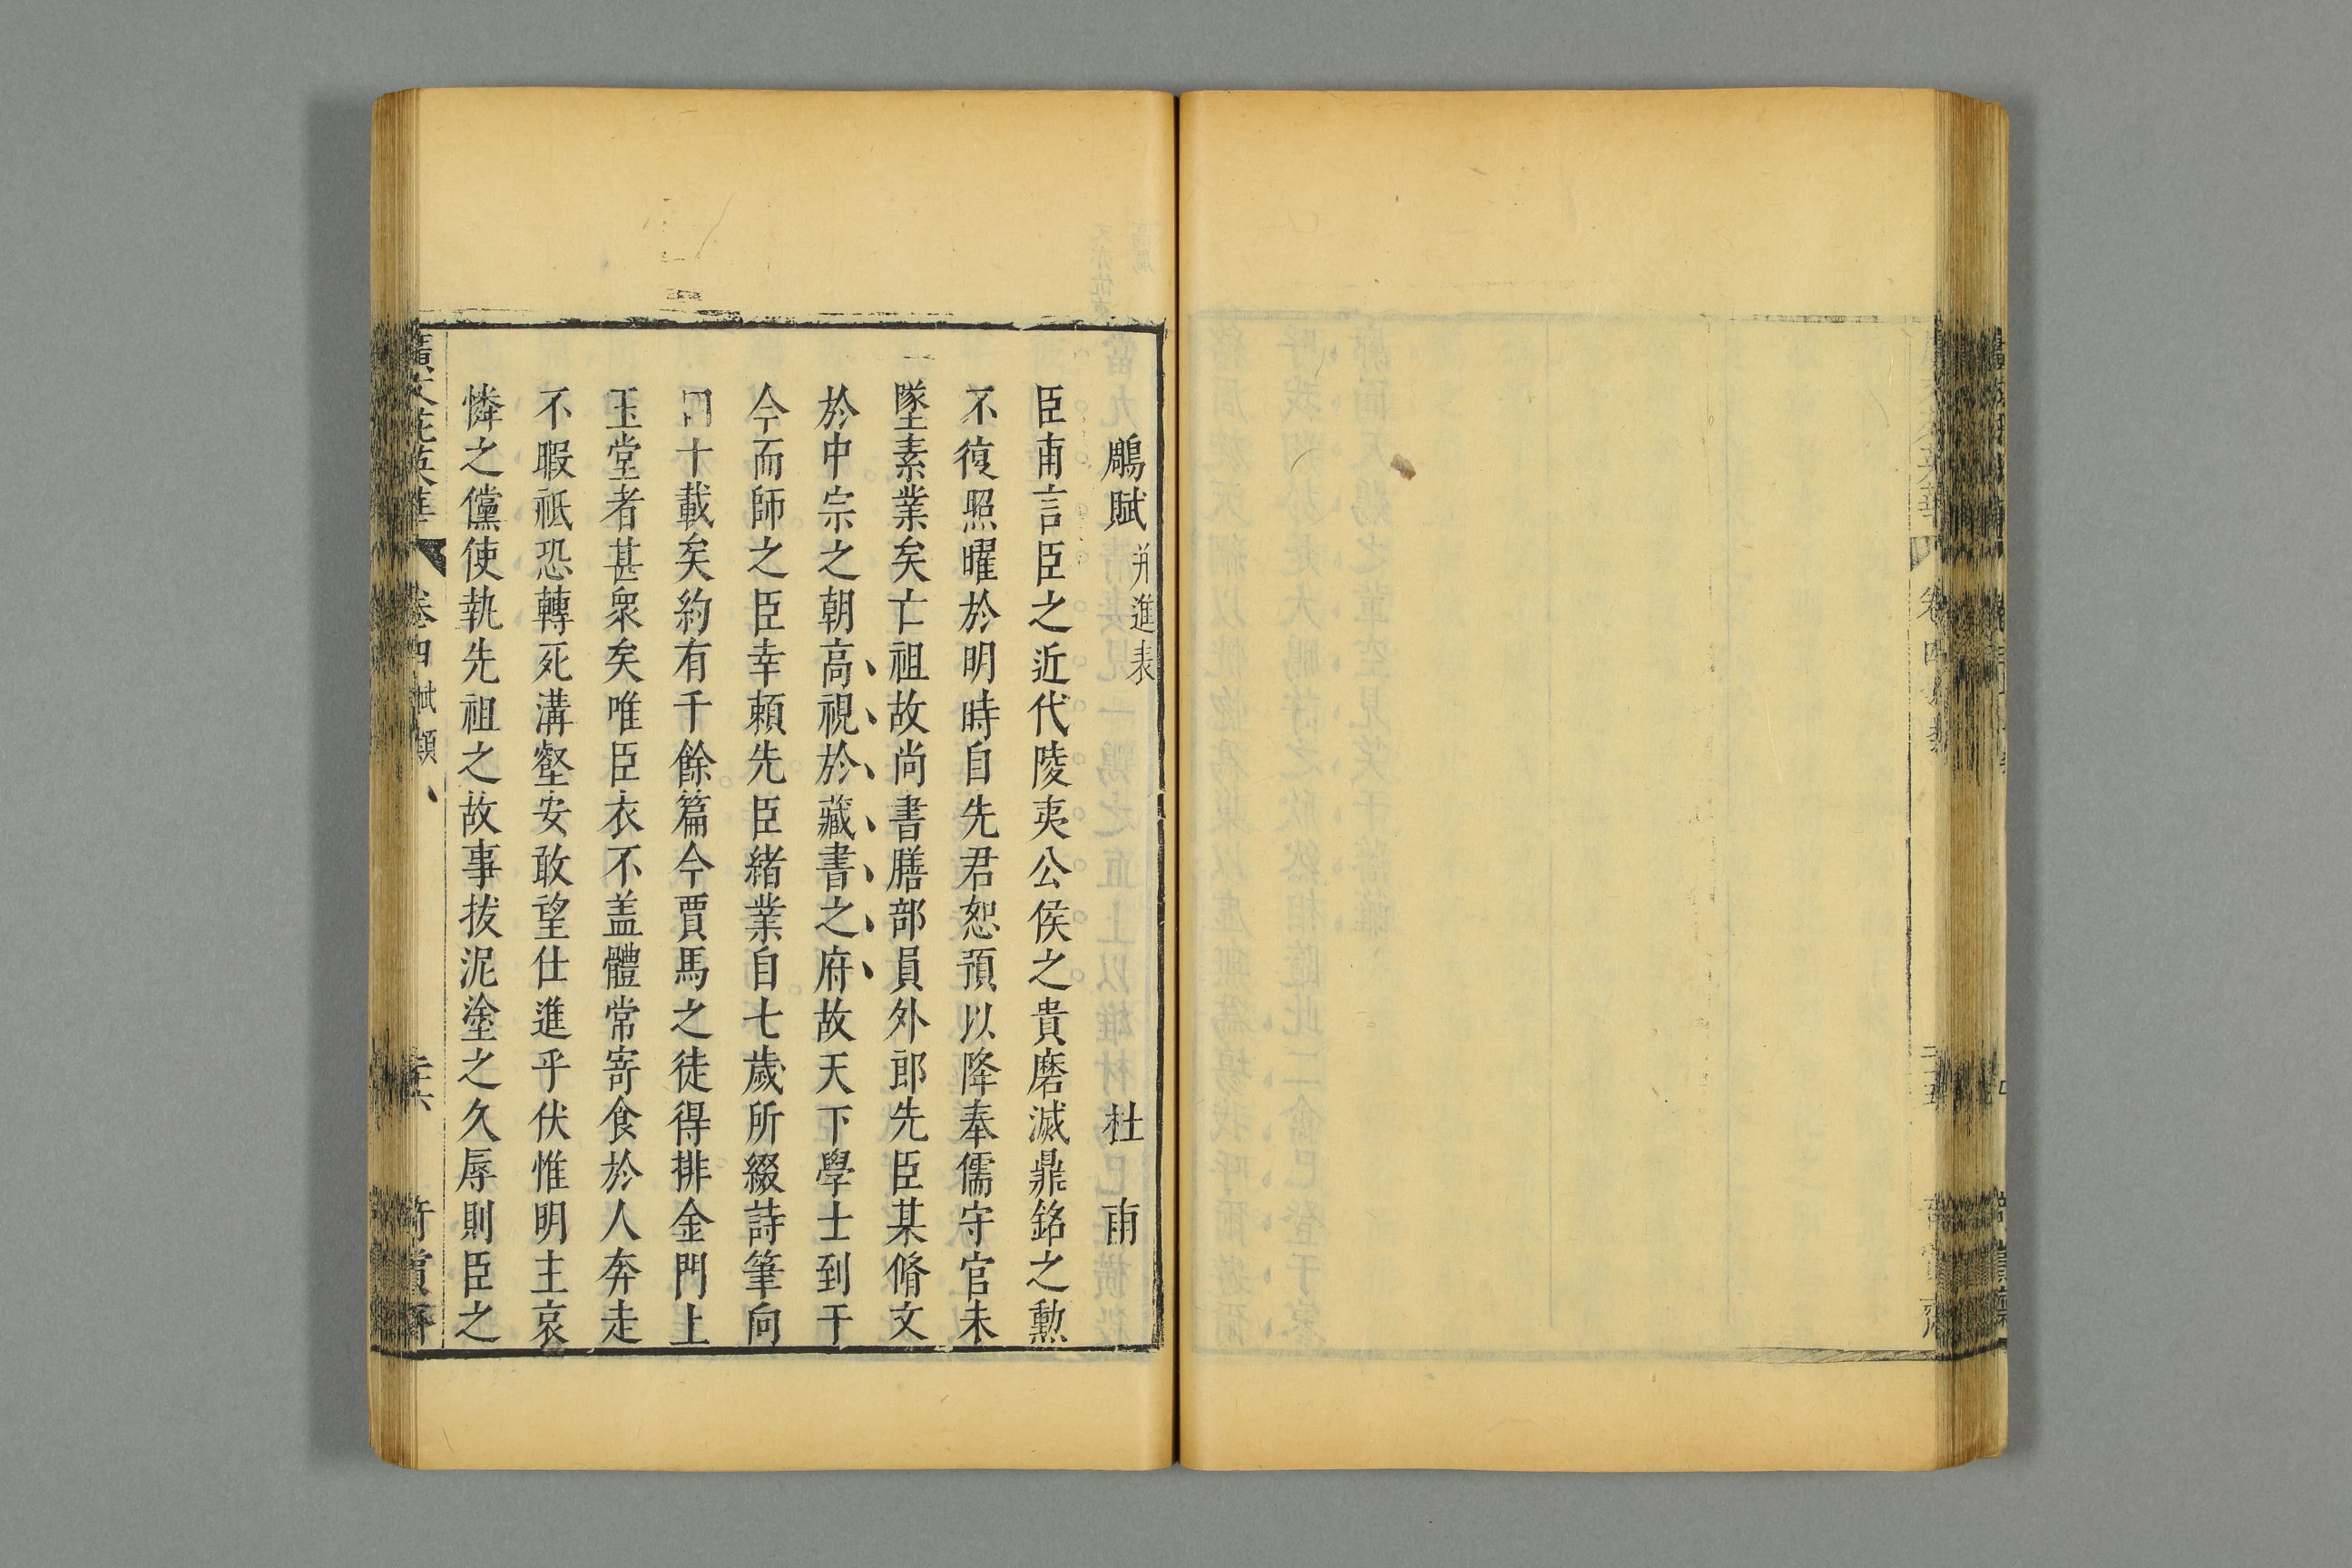 鵰賦 并進表 杜甫
臣甫言臣之近代陵夷公侯之貴磨滅鼎銘之勲
不復照曜於明時自先君恕預以降奉儒守官未
墜素業矣亡祖故尚書膳部員外郎先臣某脩文
於中宗之朝高視於藏書之府故天下學士到于
今而師之臣幸頼先臣緒業自七歲所綴詩筆向
四十載矣約有千餘篇今賈馬之徒得排金門上
玉堂者甚衆矣唯臣衣不盖體常寄食於人奔走
不暇祗恐轉死溝壑安敢望仕進乎伏惟明主哀
憐之儻使執先祖之故事拔泥塗之久辱則臣之
廣文苑英華 卷四 賦類 二十六